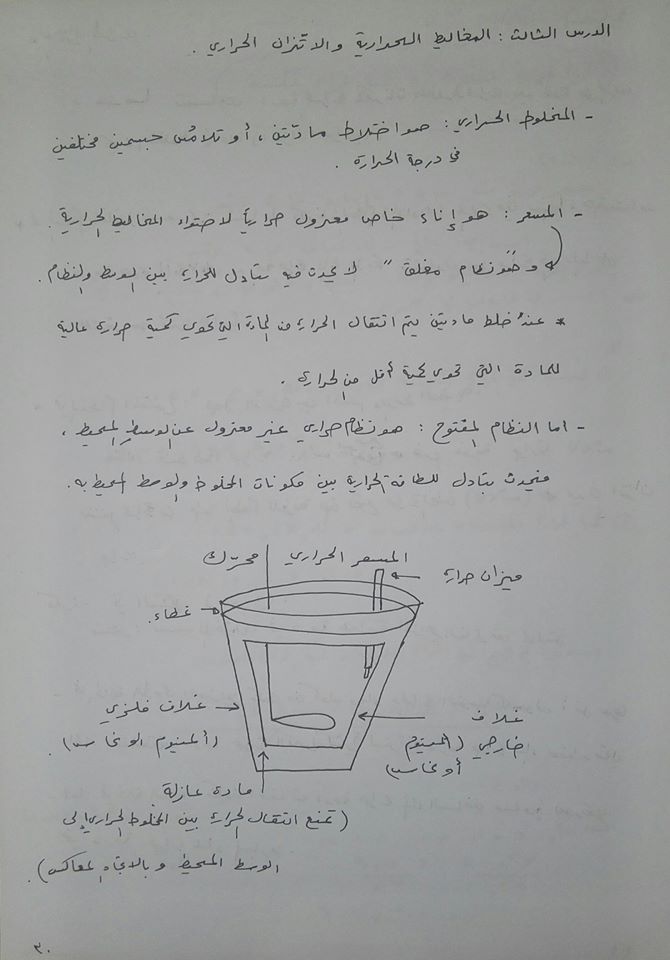 الدرس الثالث : المخاليط الحرارية والاتزان الحراري .
- المخلوط الحراري : هو اختلاط مادتين ، أو تلامس جسمين مختلفين
في درجة الحرارة .
- المسعر : هو إناء خاص معزول حرارياً لاحتواء المخاليط الحرارية .
وهو نظام مغلق " لا يحدث فيه تبادل للحرارة بين الوسط والنظام .
* عند خلط مادتين يتم انتقال الحرارة من المادة التي تحوي كمية حرارة عالية
للمادة التي تحوي كمية أقل من الحرارة .
- اما النظام المفتوح : هو نظام حراري غير معزول عن الوسط المحيط ،
فيحدث تبادل للطاقة الحرارية بين مكونات المخلوط والوسط المحيط به .
المسعر الحراري
محرّك
ميزان حرارة
غطاء .
غلاف فلزي
(ألمنيوم او نحاس)
غلاف
خارجي (المنيوم
أو نحاس)
مادة عازلة
(تمنع انتقال الحرارة بين المخلوط الحراري إلى
الوسط المحيط وبالاتجاه المعاكس) .
٣٠